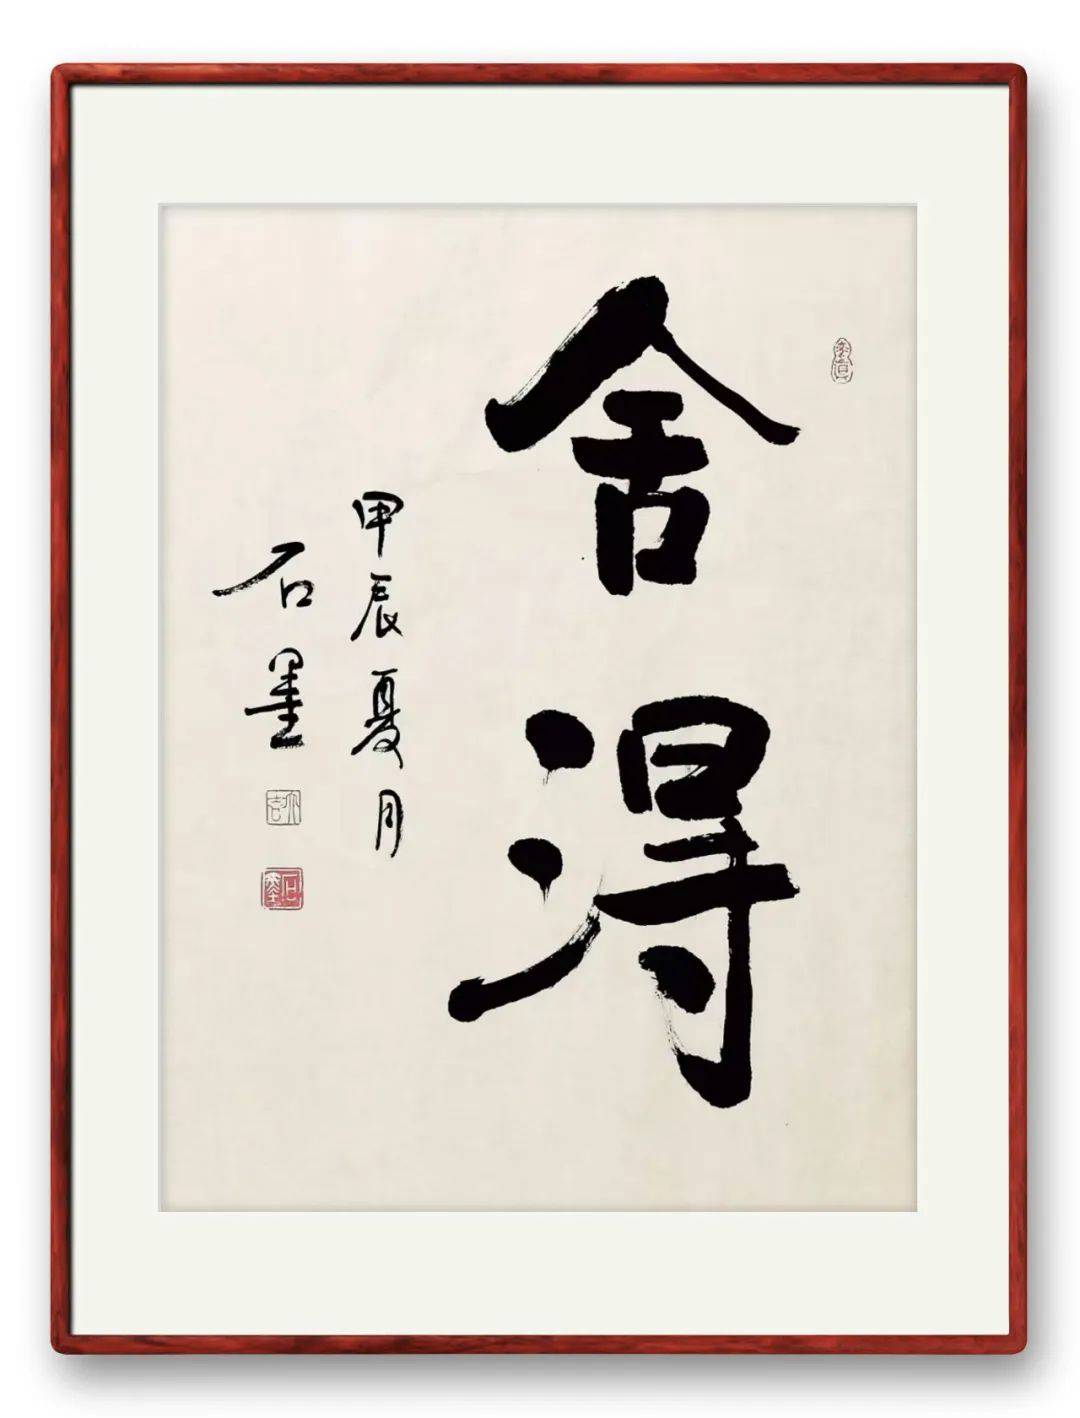 舍得
甲辰夏月
石墨
石墨